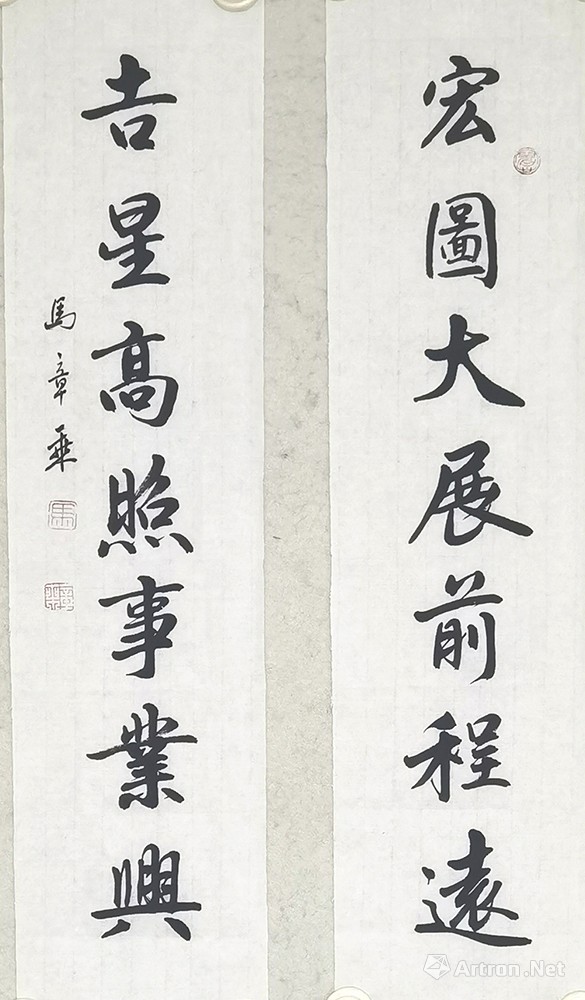 宏圖大展前程遠
吉星高照事業興
馬章乘
Artron.Net